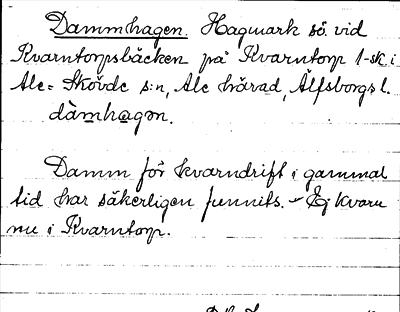 Dammhagen. Hagmark sö. vid
Kvarntorpsbäcken på Kvarntorp 1-sk. i
Ale-Skövde s:n, Ale härad, Älfsborgs l.
dàmhagən.
Damm för kvarndrift i gammal
tid har säkerligen funnits. - Ej kvarn
nu i Kvarntorp.